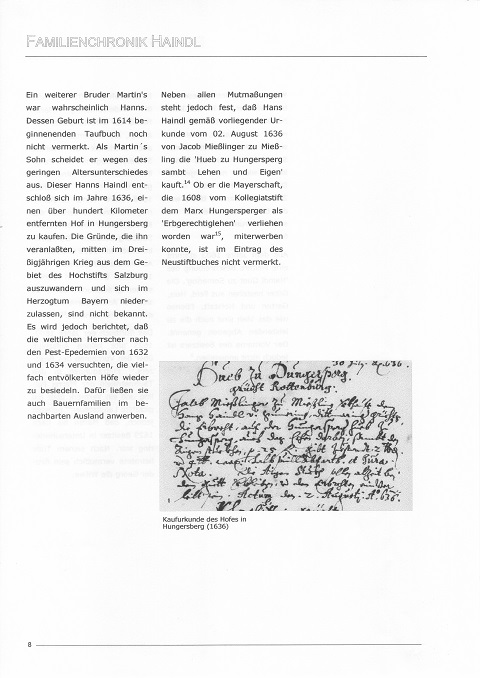 FAMILIENCHRONIK HAINDL
Ein weiterer Bruder Martin's
war wahrscheinlich Hanns.
Dessen Geburt ist im 1614 be-
ginnenenden Taufbuch noch
nicht vermerkt. Als Martin´s
Sohn scheidet er wegen des
geringen Altersunterschiedes
aus. Dieser Hanns Haindl ent-
schloß sich im Jahre 1636, ei-
nen über hundert Kilometer
entfernten Hof in Hungersberg
zu kaufen. Die Gründe, die ihn
veranlaßten, mitten im Drei-
ßigjährigen Krieg aus dem Ge-
biet des Hochstifts Salzburg
auszuwandern und sich im
Herzogtum Bayern nieder-
zulassen, sind nicht bekannt.
Es wird jedoch berichtet, daß
die weltlichen Herrscher nach
den Pest-Epedemien von 1632
und 1634 versuchten, die viel-
fach entvölkerten Höfe wieder
zu besiedeln. Dafür ließen sie
auch Bauernfamilien im be-
nachbarten Ausland anwerben.
Neben allen Mutmaßungen
steht jedoch fest, daß Hans
Haindl gemäß vorliegender Ur-
kunde vom 02. August 1636
von Jacob Mießlinger zu Mieß-
ling die 'Hueb zu Hungersperg
sambt Lehen und Eigen'
kauft.14 Ob er die Mayerschaft,
die 1608 vom Kollegiatstift
dem Marx Hungersperger als
'Erbgerechtiglehen' verliehen
worden war15, miterwerben
konnte, ist im Eintrag des
Neustiftbuches nicht vermerkt.
Hueb zu Hungersperg
Rottenburg.
Kaufurkunde des Hofes in
Hungersberg (1636)
8